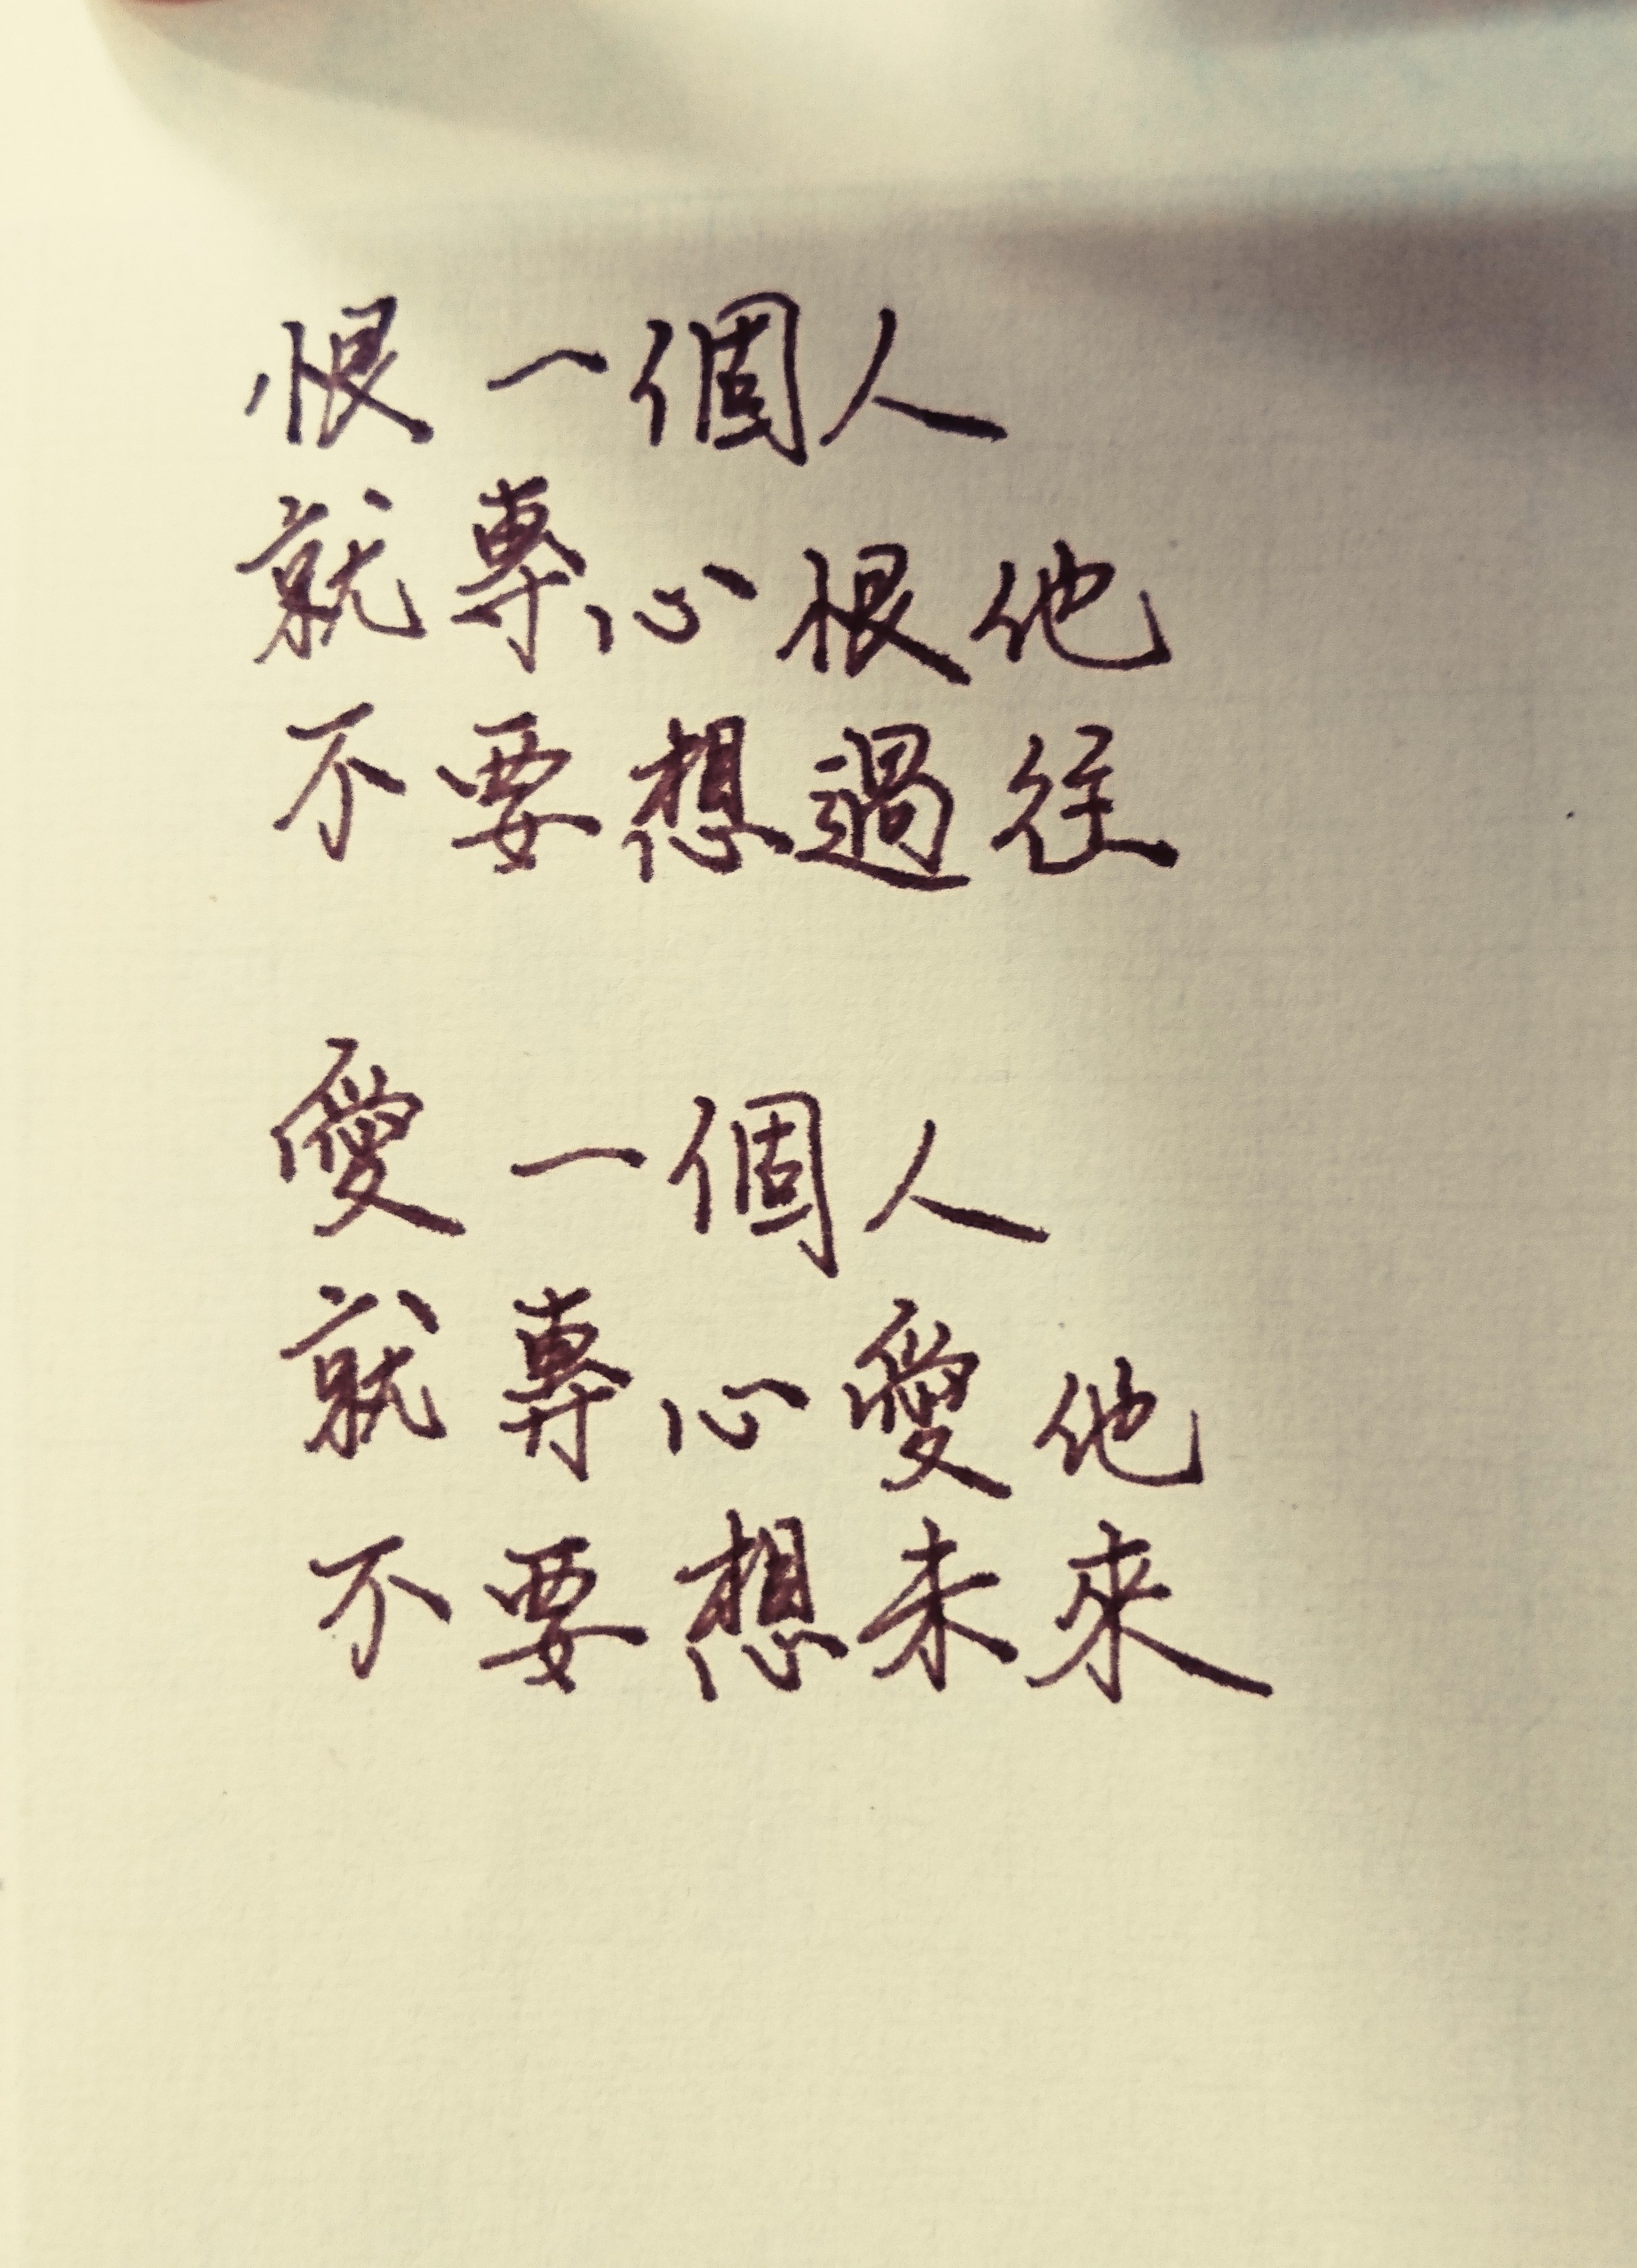 恨一個人
就專心恨他
不要想過往
愛一個人
就專心愛他
不要想未來